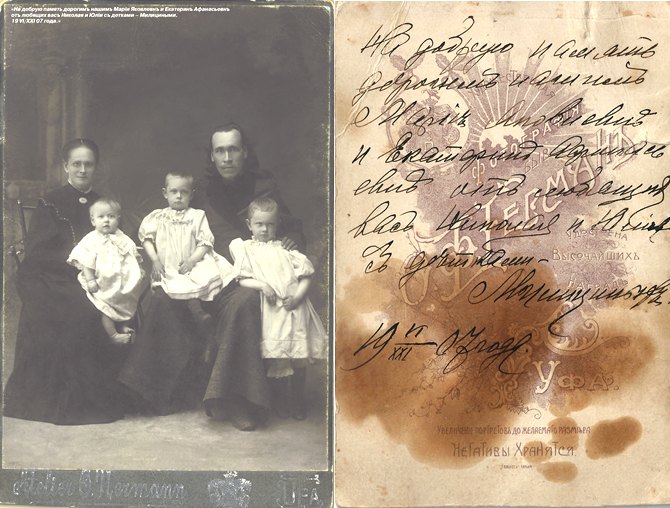 «На добрую память дорогимъ нашимъ Марiи Яковлевнѣ и Екатеринѣ Афанасьевнѣ
отъ любящихъ васъ Николая и Юлiи съ дѣтками – Милициными.
19 VI/XXI 07 года.»
Atelier O. Hermann
UFA
На добрую память
дорогимъ нашимъ
Марiи Яковлевнѣ
и Екатеринѣ Афанась
евнѣ отъ любящихъ
васъ Николая и Юлiи
съ дѣтками –
Милициными
19 VI/XXI 07 года.
ФОТОГРАФIЯ
ГЕРМАНЪ
ВЫСОЧАЙШИХЪ
УФА.
УВЕЛИЧЕНIЕ ПОРТРЕТОВЪ ДО ЖЕЛАЕМАГО РАЗМѢРА
НЕГАТИВЫ ХРАНЯТСЯ.